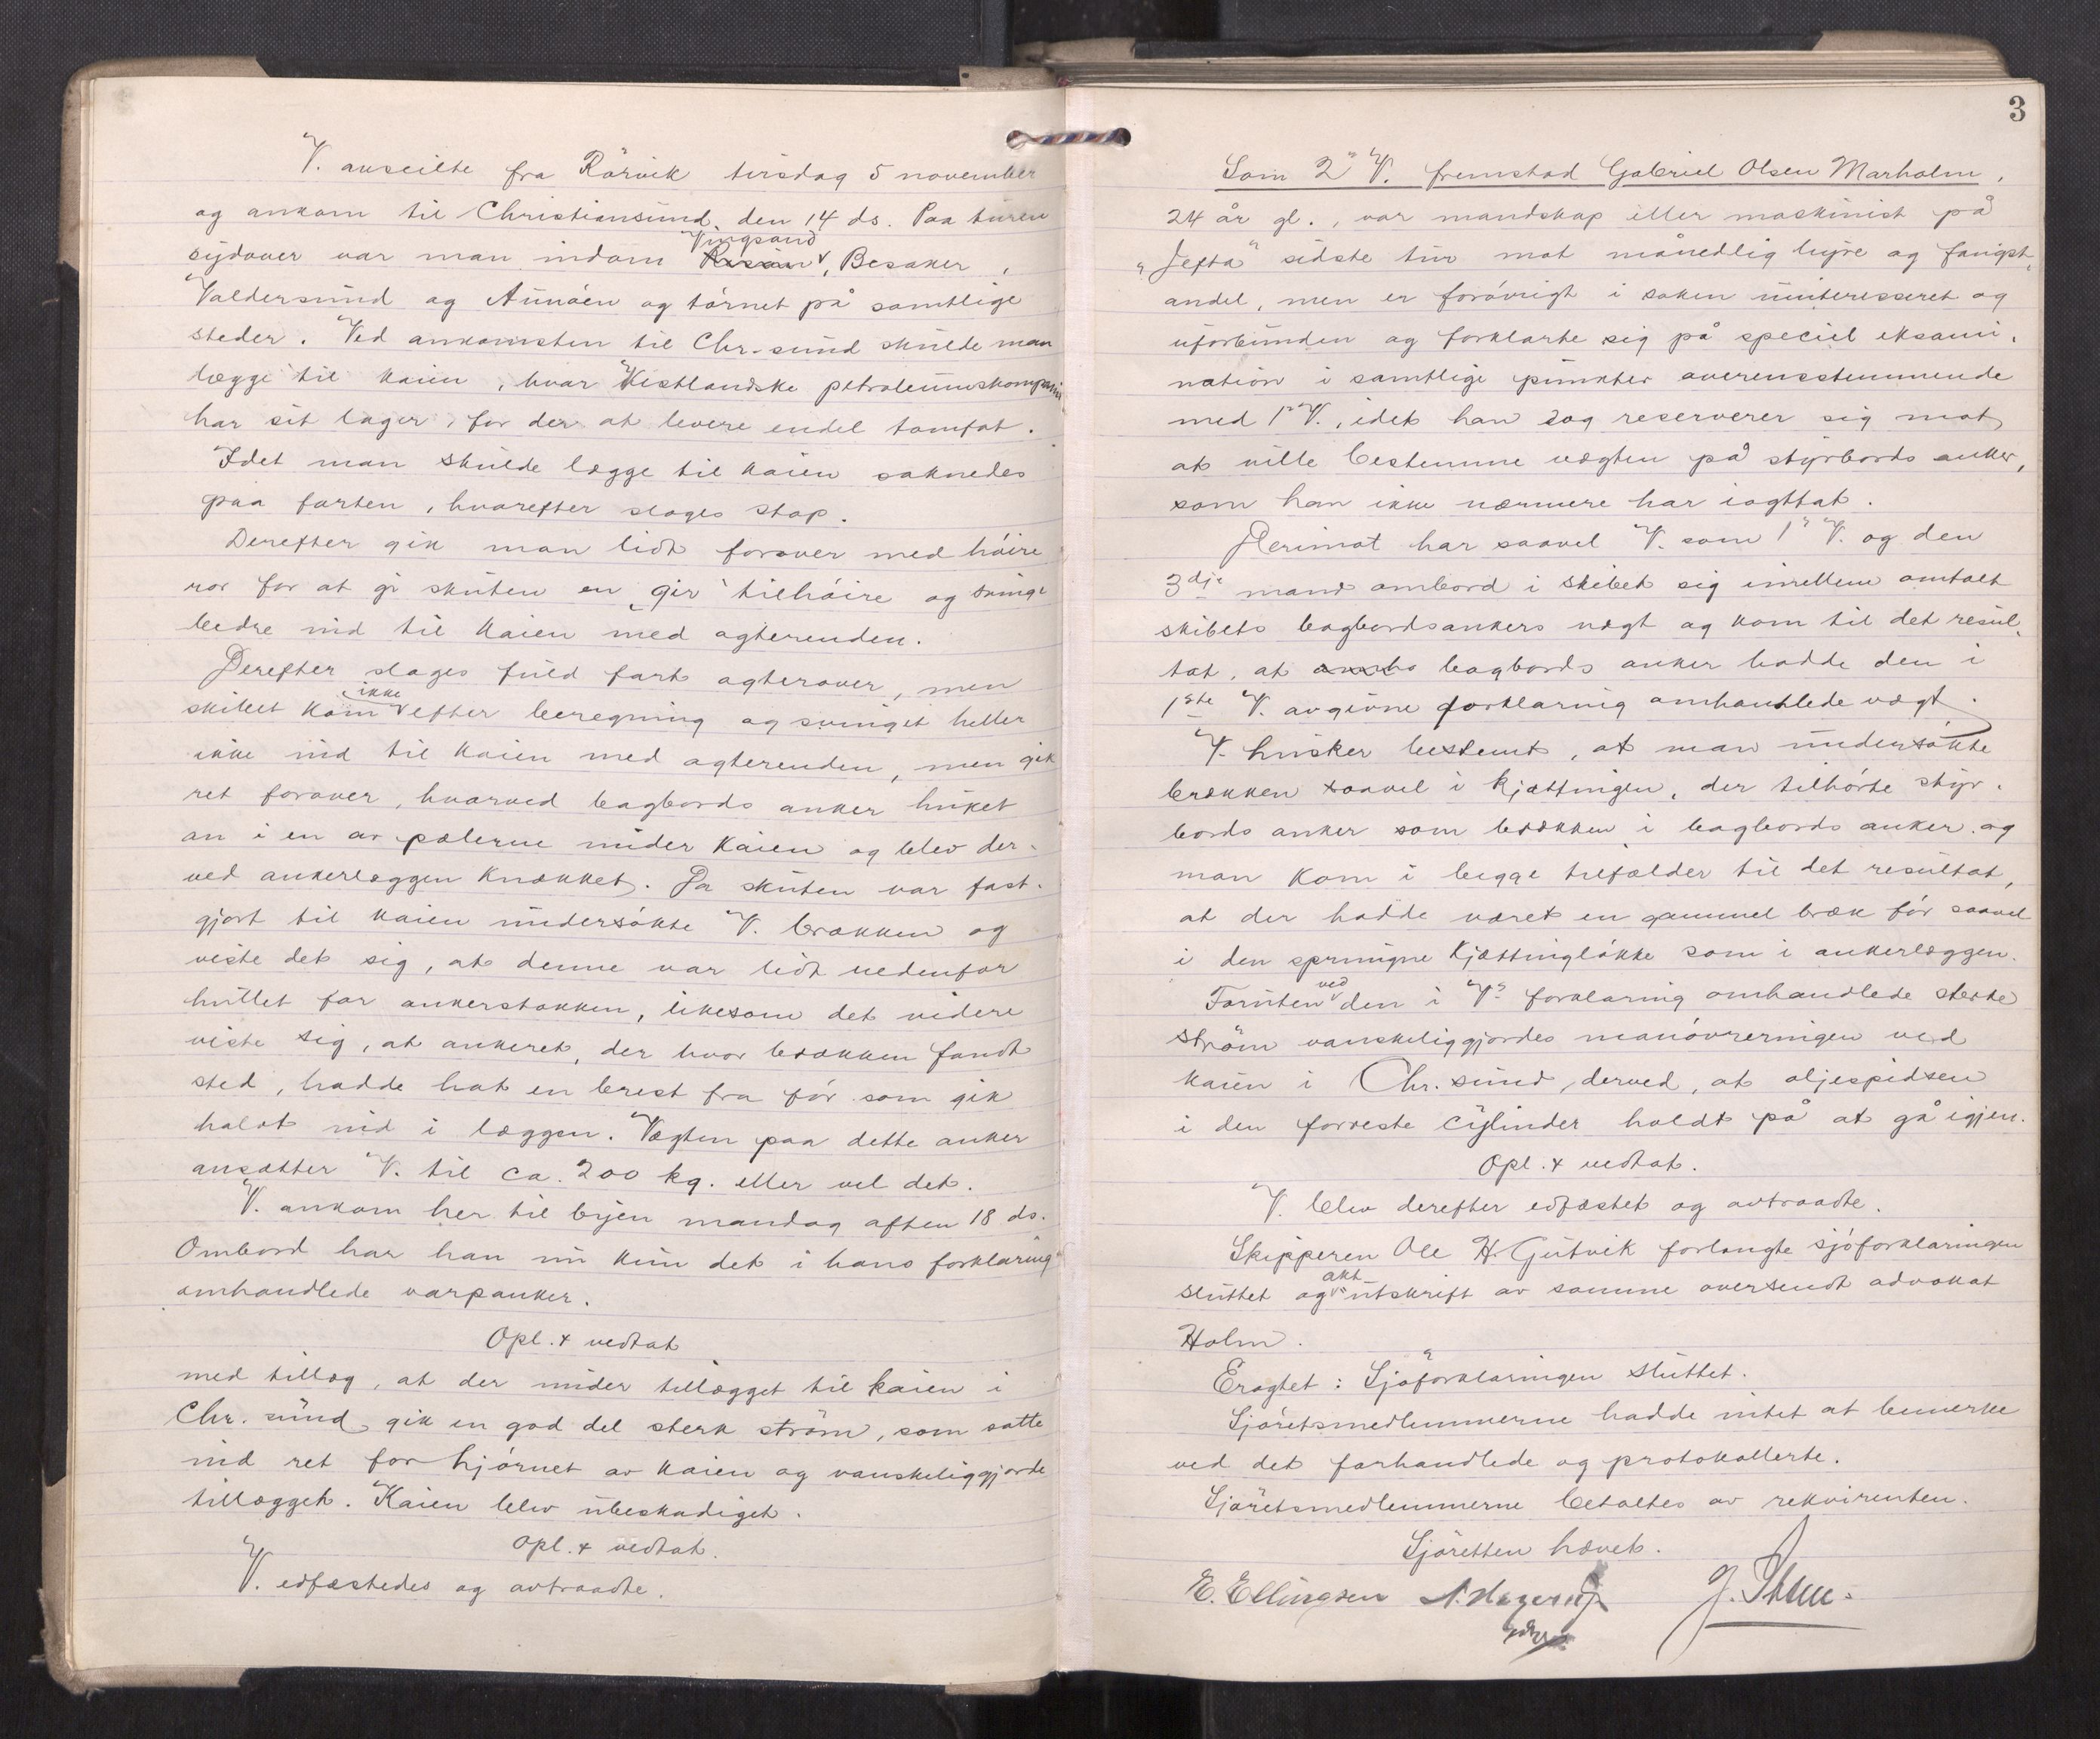 V. avseilte fra Rörvik tirsdag 5 november
og ankom til Christiansund den 14 ds. Paa turen
sydover var man indom Vingsand, Besaker,
Valdersund og Aunöen og törnet på samtlige
steder. Ved ankomsten til Chr.sund skulde man
lægge til kaien, hvor Vestlandske petroleumskompani
har sit lager, for der at levere endel tomfat.
Idet man skulde lægge til kaien saknedes
paa farten, hvorefter sloges stop.
Derefter gik man lidt forover med höire
ror for at gi skuten en gir tilhöire og svinge
bedre ind til kaien med agterenden.
Derefter sloges fuld fart agterover, men
skibet kom ikke efter beregning og svinget heller
ikke ind til kaien med agterenden, men gik
ret forover, hvorved bagbords anker huket
an i en av pælerne under kaien og blev der-
ved ankerlæggen knækket. Da skuten var fast-
gjort til kaien undersökte V. brækken og
viste det sig, at denne var lidt nedenfor
hullet for ankerstokken, likesom det videre
viste sig, at ankeret, der hvor brækken fandt
sted, hadde hat en brest fra för som gik
halvt ind i læggen. Vægten paa dette anker
ansætter V. til ca. 200 kg. eller vel det.
V. ankom her til byen mandag aften 18 ds.
Ombord har han nu kun det i hans forklaring
omhandlede varpanker.
Opl. & vedtat
med tillæg, at der under tillægget til kaien i
Chr.sund gik en god del sterk ström, som satte
ind ret for hjörnet av kaien og vanskeliggjorde
tillægget. Kaien blev ubeskadiget.
Opl. & vedtat.
V. edfæstedes og avtraadte.
3
Som 2" V. fremstod Gabriel Olsen Marholm,
24 år gl., var mandskap eller maskinist på
"Jefta" sidste tur mot månedlig hyre og fangst-
andel, men er forövrigt i saken uinteresseret og
uforbunden og forklarte sig på speciel eksami-
nation i samtlige punkter overensstemmende
med 1" V., idet han dog reserverer sig mot
at ville bestemme vægten på styrbords anker,
som han ikke nærmere har iagttat.
Derimot har saavel V. som 1" V. og den
3dje mand ombord i skibet sig imellem omtalt
skibets bagbordsankers vægt og kom til det resul-
tat, at bagbords anker hadde den i
1ste V. avgivne forklaring omhandlede vægt.
V. husker bestemt, at man undersökte
brækken saavel i kjættingen, der tilhörte styr-
bords anker som brækken i bagbords anker og
man kom i begge tilfælder til det resultat,
at der hadde været en gammel bræk för saavel
i den sprungne kjættinglökke som i ankerlæggen.
Foruten ved den i V's forklaring omhandlede sterke
ström vanskeliggjordes manövreringen ved
kaien i Chr.sund, derved, at oljespidsen
i den forreste cylinder holdt på at gå igjen.
Opl. & vedtat.
V. blev derefter edfæstet og avtraadte.
Skipperen Ole H. Gutvik forlangte sjöforklaringen
sluttet og akt utskrift av samme oversendt advokat
Holm.
Eragtet: Sjöforklaringen sluttet.
Sjöretsmedlemmerne hadde intet at bemerke
ved det forhandlede og protokollerte.
Sjöretsmedlemmerne betaltes av rekvirenten.
Sjöretten hævet.
E. Ellingsen